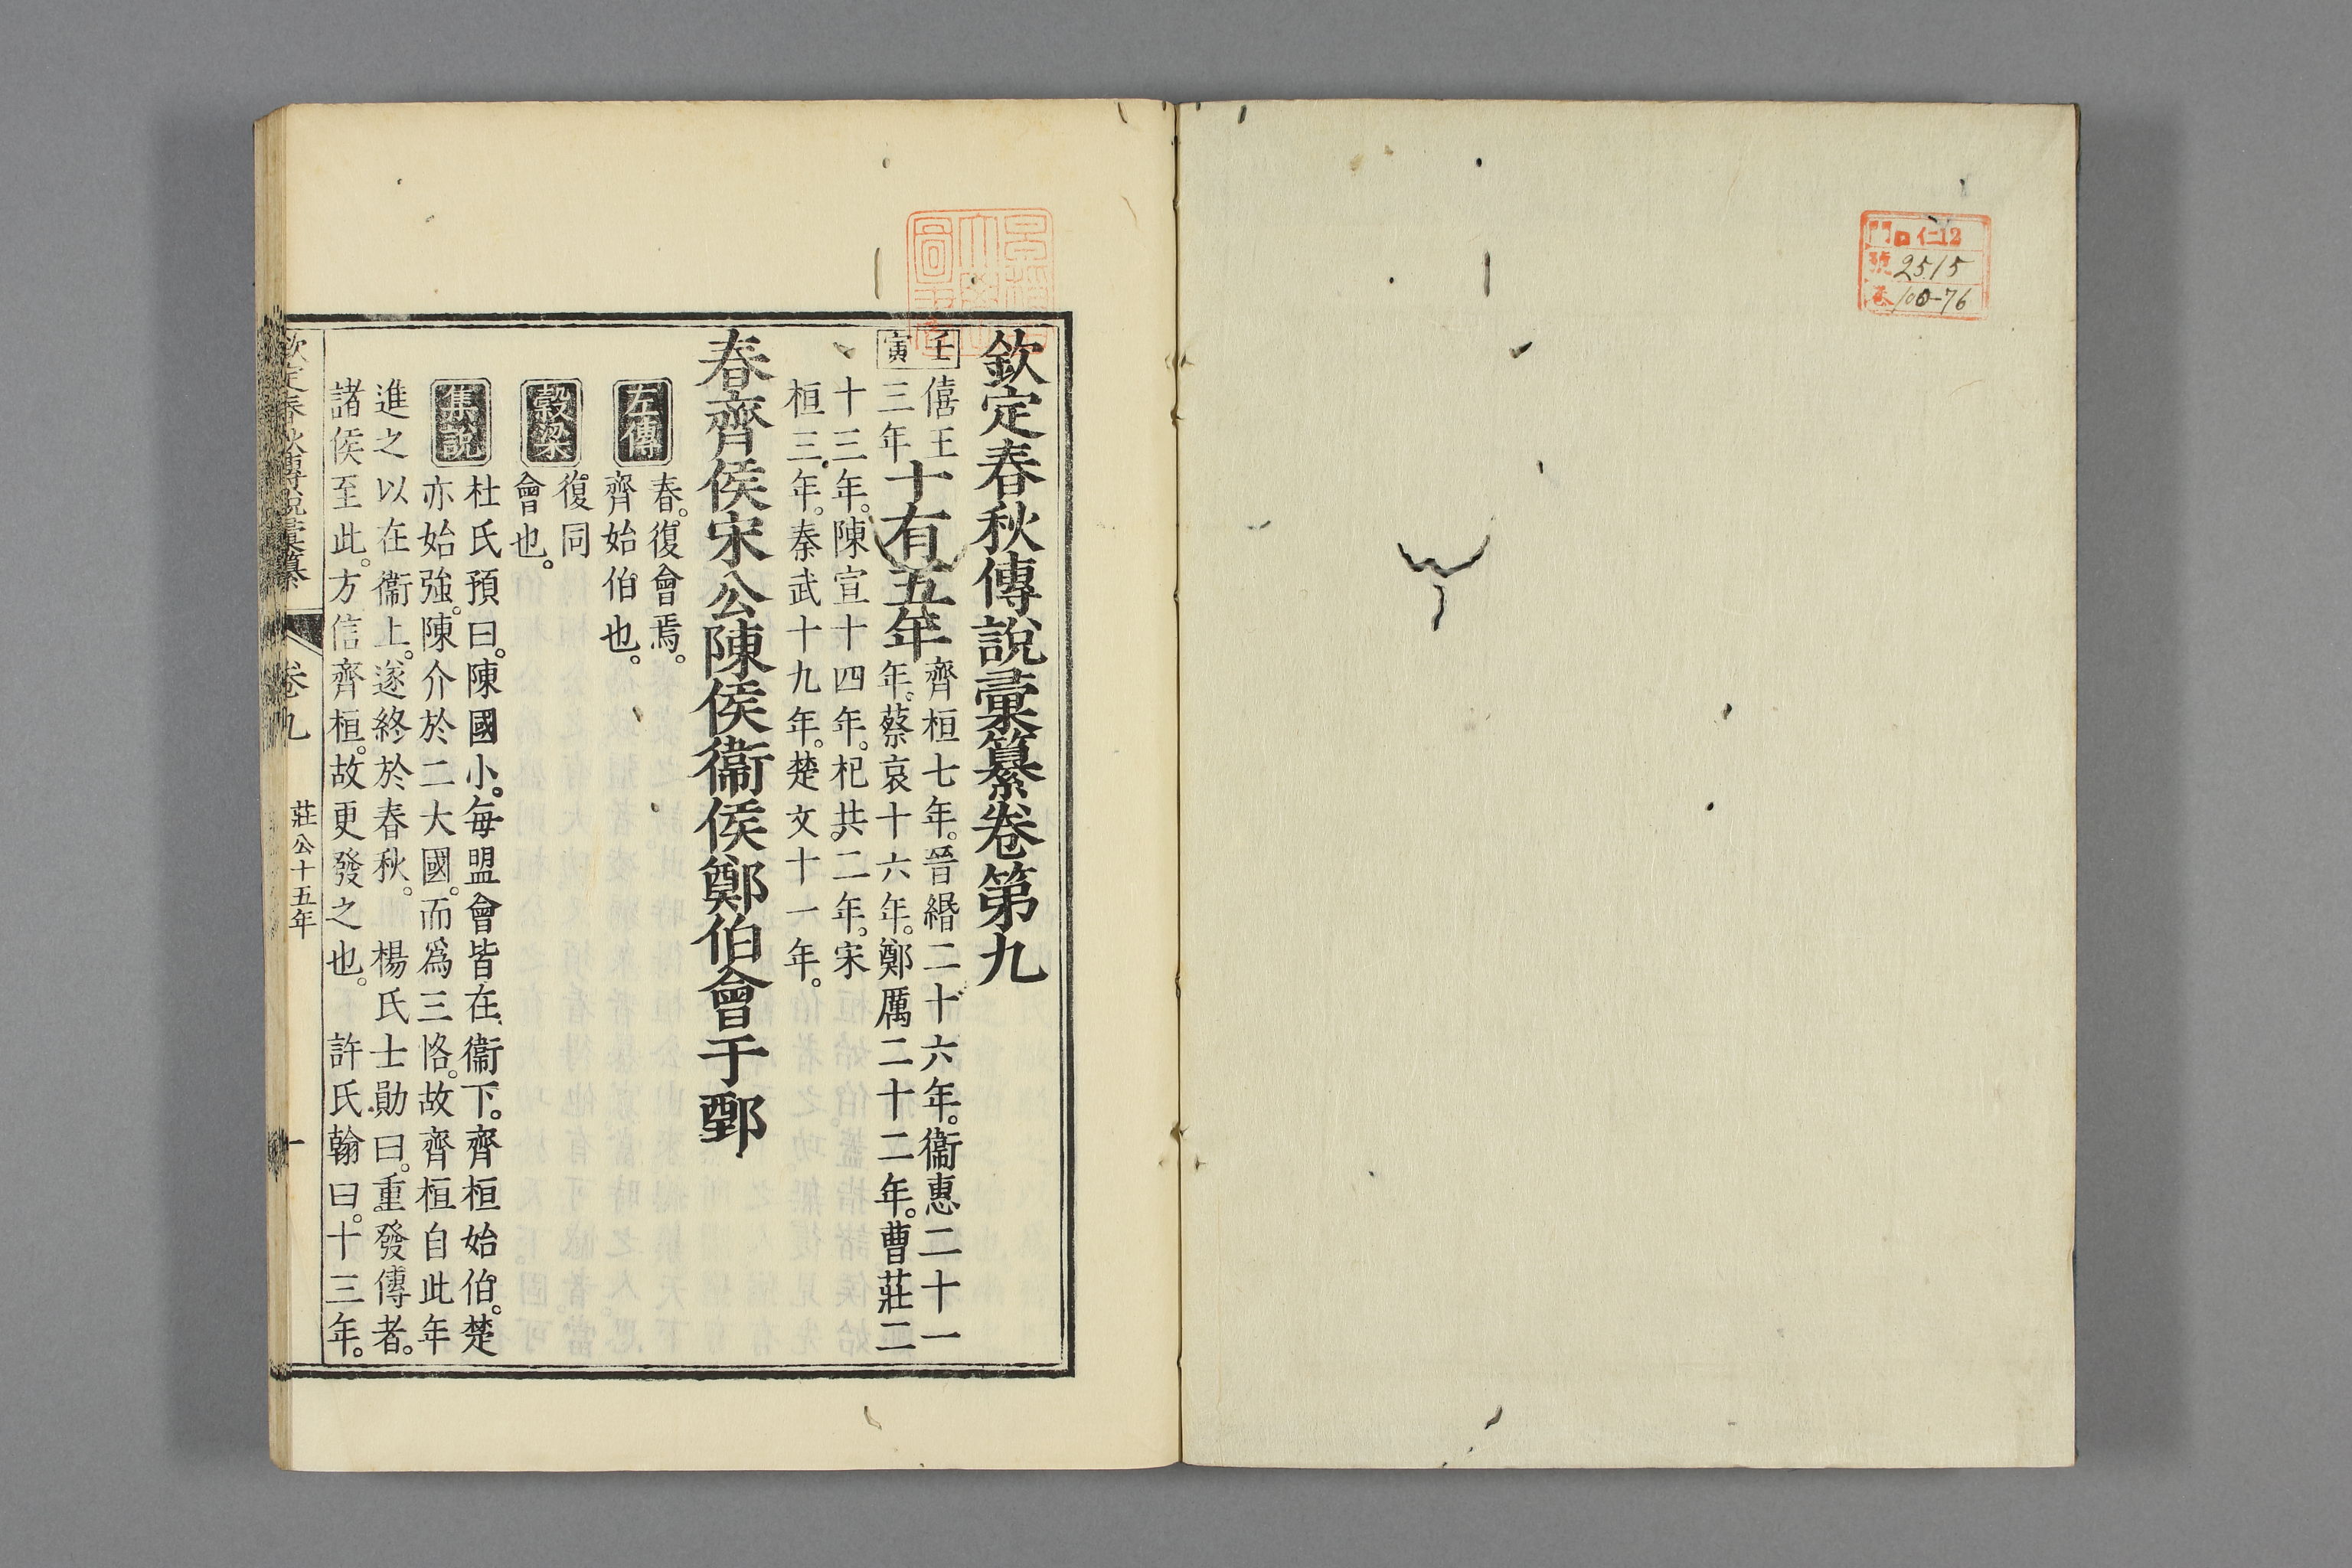 門 口 仁12
號 2515
卷 100-76
欽定春秋傳說彙纂卷第九
壬寅
僖王
三年
十有五年
齊桓七年。晉緡二十六年。衞惠二十一
年。蔡哀十六年。鄭厲二十二年。曹莊二
十三年。陳宣十四年。杞共二年。宋
桓三年。秦武十九年。楚文十一年。
春齊侯宋公陳侯衞侯鄭伯會于鄄
左傳
春。復會焉。
齊始伯也。
穀梁
復同
會也。
集說
杜氏預曰。陳國小。每盟會皆在衞下。齊桓始伯。楚
亦始強。陳介於二大國。而爲三恪。故齊桓自此年
進之以在衞上。遂終於春秋。 楊氏士勛曰。重發傳者。
諸侯至此。方信齊桓。故更發之也。 許氏翰曰。十三年。
欽定春秋傳說彙纂 卷九 莊公十五年 一